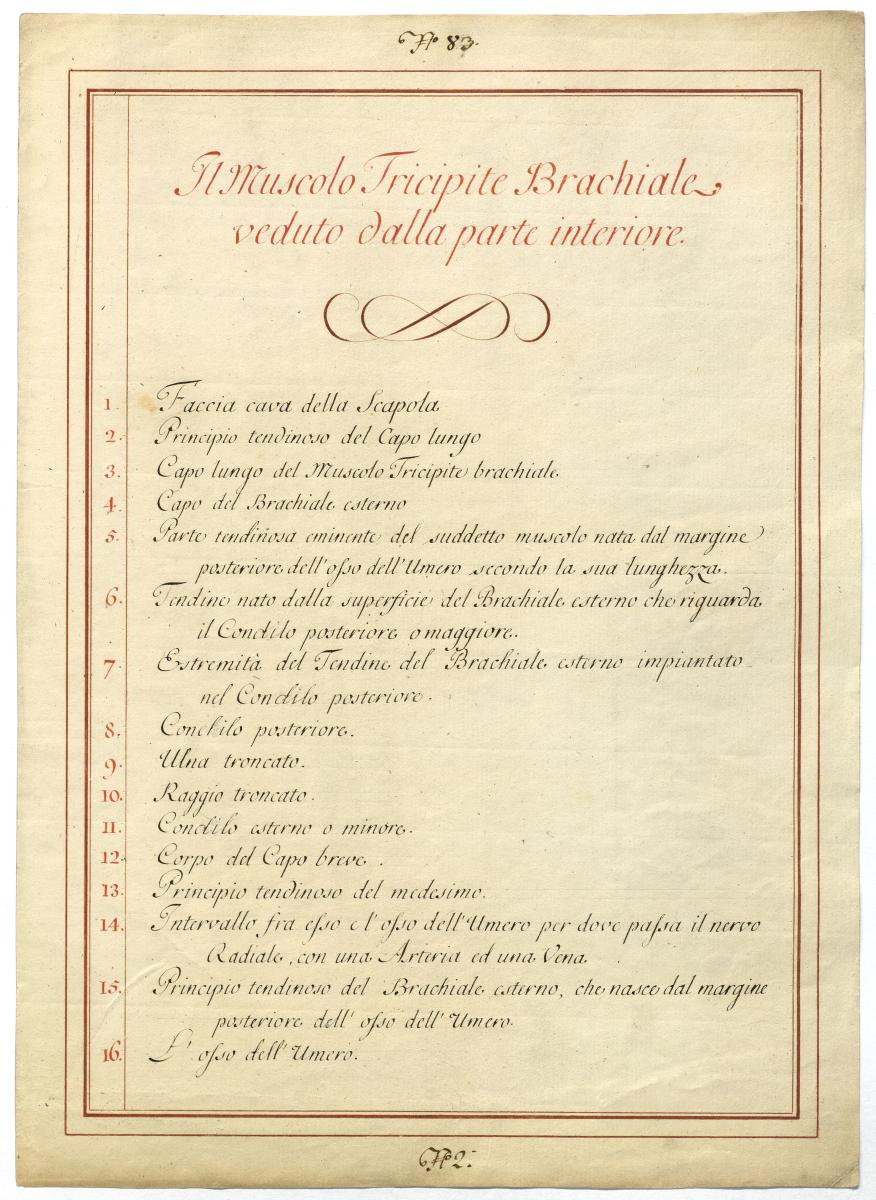 No 83.
Il Muscolo Tricipite Brachiale
veduto dalla parte interiore.
1. Faccia cava della Scapola
2. Principio tendinoso del Capo lungo
3. Capo lungo del Muscolo Tricipite brachiale
4. Capo del Brachiale esterno
5. Parte tendinosa eminente del suddetto muscolo nata dal margine
posteriore dell'osso dell'Umero secondo la sua lunghezza.
6. Tendine nato dalla superficie del Brachiale esterno che riguarda
il Condilo posteriore o maggiore.
7. Estremità del Tendine del Brachiale esterno impiantato
nel Condilo posteriore.
8. Condilo posteriore.
9. Ulna troncato.
10. Raggio troncato.
11. Condilo esterno o minore.
12. Corpo del Capo breve.
13. Principio tendinoso del medesimo.
14. Intervallo fra esso e l'osso dell'Umero per dove passa il nervo
Radiale, con una Arteria ed una Vena.
15. Principio tendinoso del Brachiale esterno, che nasce dal margine
posteriore dell' osso dell'Umero.
16. L' osso dell'Umero.
No 2.